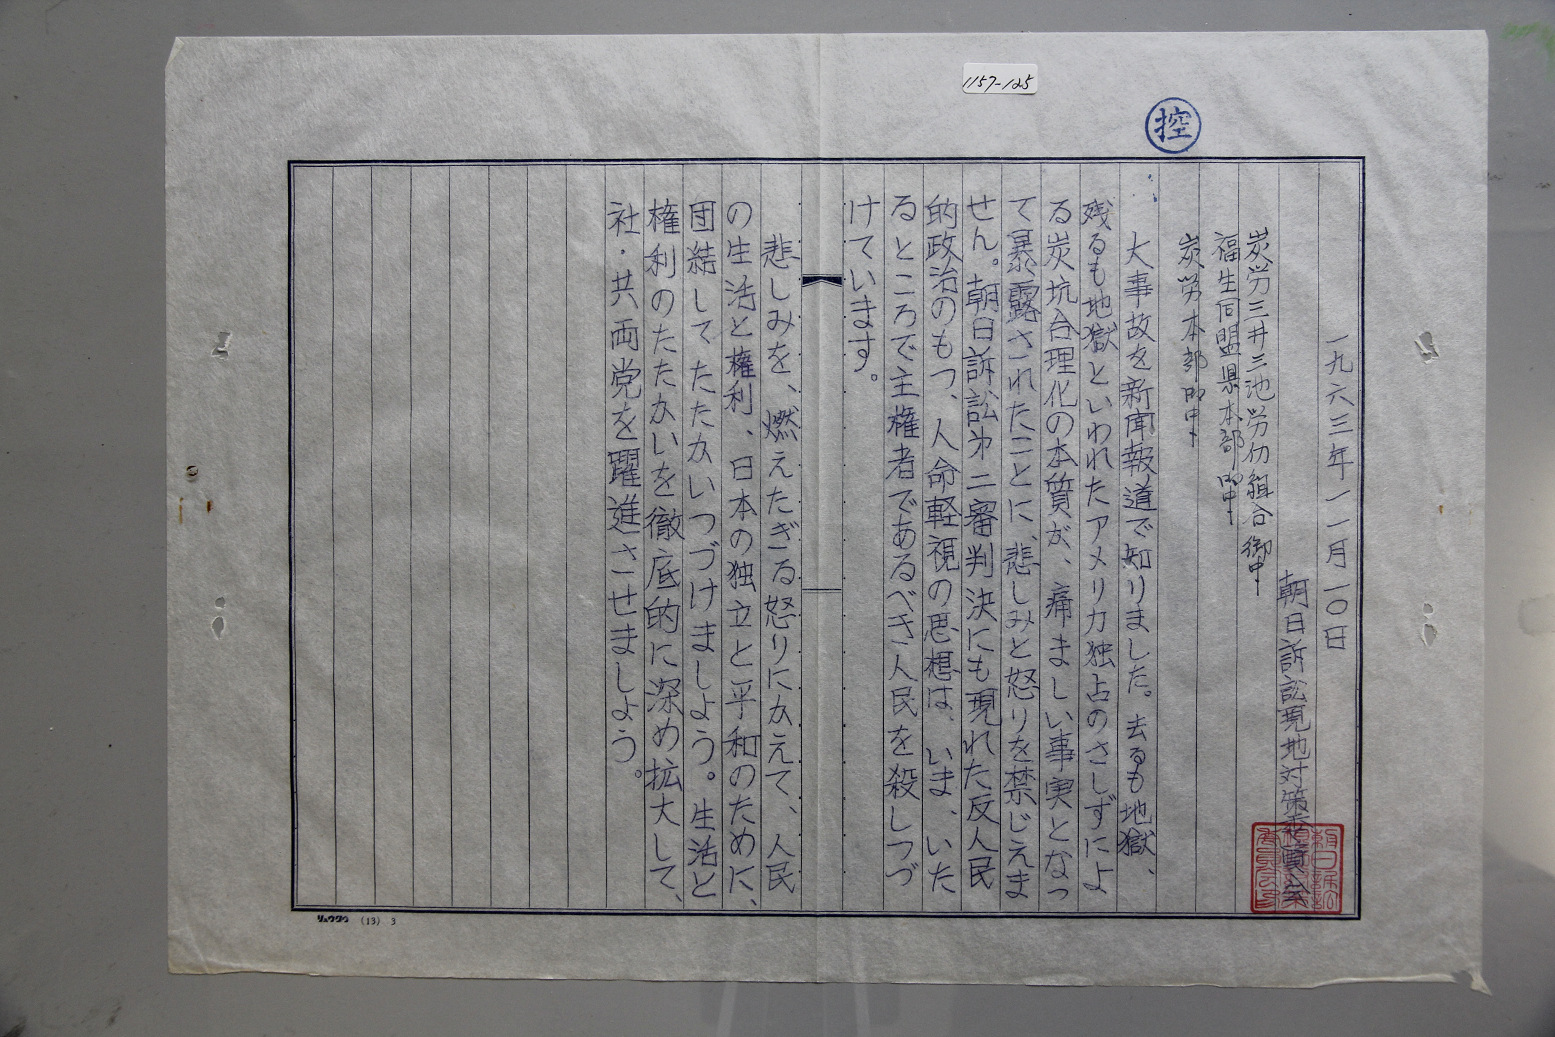 1157-125
控
一九六三年一一月一〇日
朝日訴訟現地対策委員会
炭労三井三池労仂組合御中
福生同盟県本部御中
炭労本部御中
大事故を新聞報道で知りました。去るも地獄、
残るも地獄といわれたアメリカ独占のさしずによ
る炭坑合理化の本質が、痛ましい事実となっ
て暴露されたことに、悲しみと怒りを禁じえま
せん。朝日訴訟㐧二審判決にも現れた反人民
的政治のもつ、人命軽視の思想は、いま、いた
るところで主権者であるべき人民を殺しつづ
けています。
悲しみを、燃えたぎる怒りにかえて、人民
の生活と権利、日本の独立と平和のために、
団結してたたかいつづけましよう。生活と
権利のたたかいを徹底的に深め拡大して、
社・共両党を躍進させましよう。
リュウグウ (13) 3